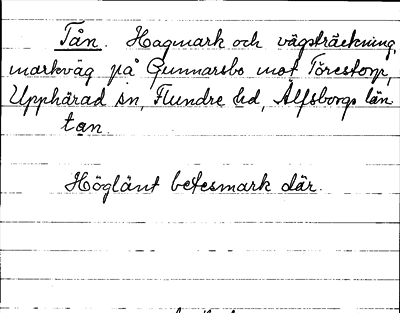 Tån. Hagmark och vägsträckning,
markväg på Gunnarsbo mot Torestorp,
Upphärad sn, Flundre hd, Älfsborgs län
tan.
Höglänt betesmark där.